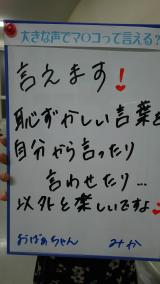 大きな声でマ○コって言える?
言えます!
恥ずかしい言葉を
自分から言ったり
言わせたり…
以外と楽しいですよ
おばあちゃん みか